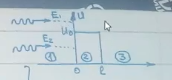 E₁ U
U₀
E₂
① ② ③
0 ℓ